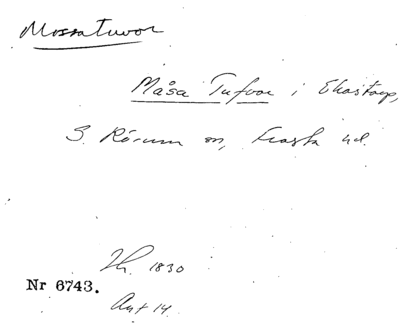 Mossatuvor
Måsa Tufvor i Ekastorp,
S. Rörum sn, Frosta hd.
Th. 1830
Nr 6743.
Ant 14